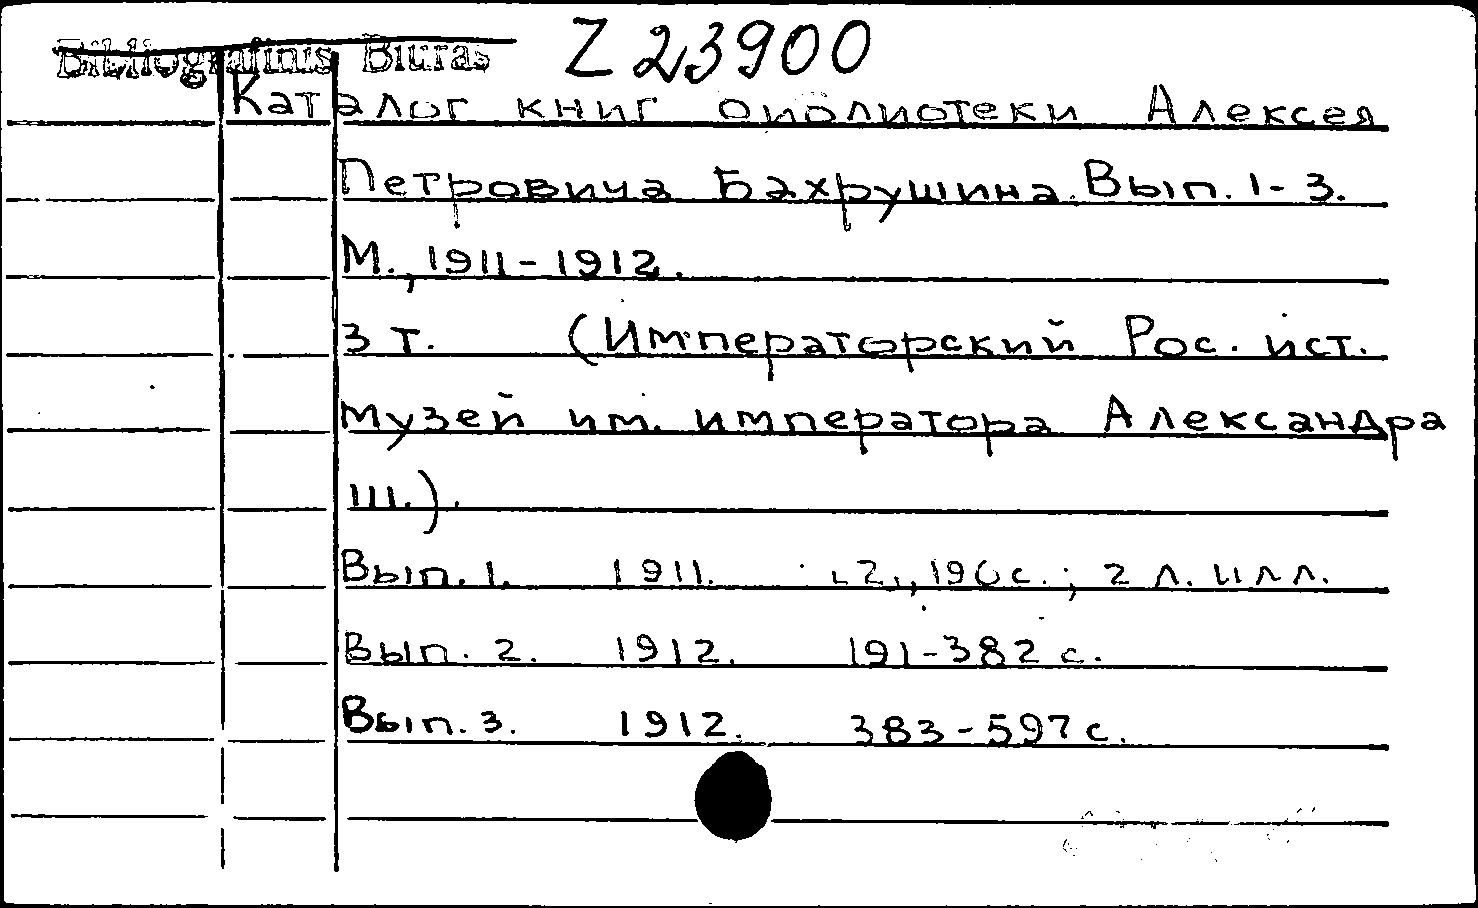 Bibliografinis Biuras Z 23900
Каталог книг библиотеки Алексея
Петровича Бахрушина. Вып. 1-3.
М., 1911-1912.
3 т. (Императорский Рос. ист.
музей им. императора Александра
III.).
Вып. 1. 1911. 2 л. илл.
Вып. 2. 1912. 191-382 с.
Вып. 3. 1912. 383-597 с.